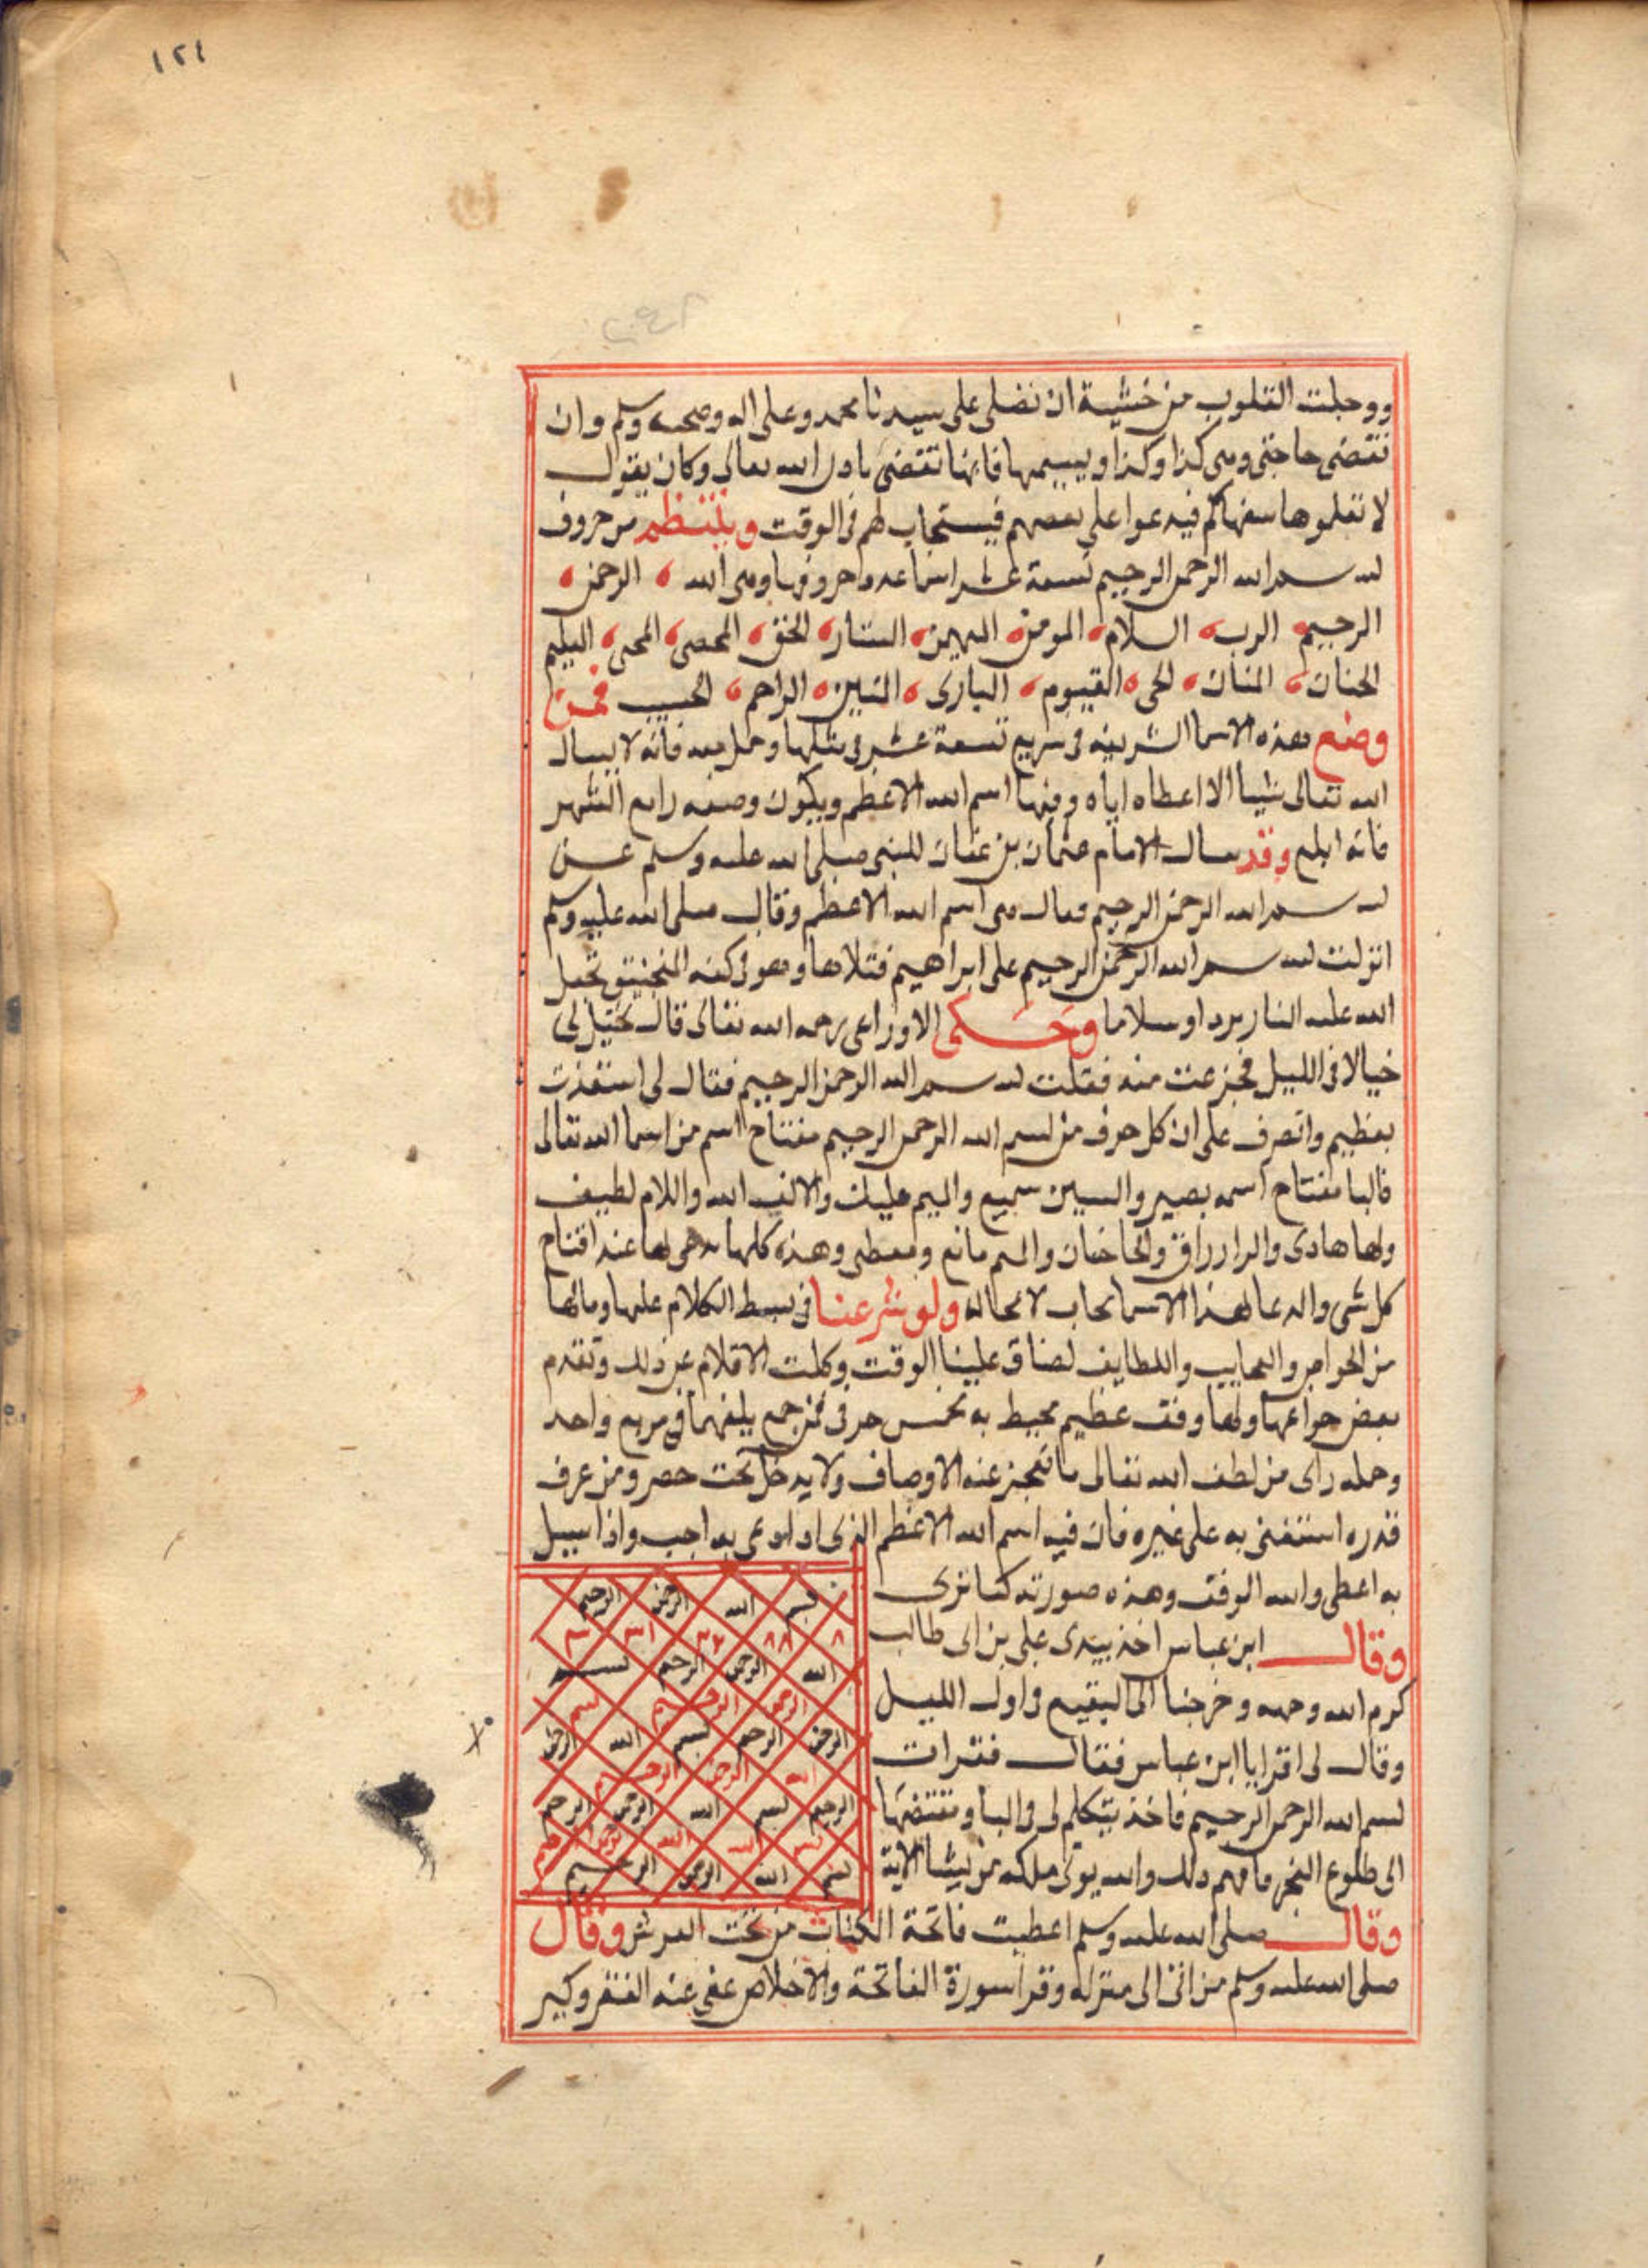 ١٢١
ووجلت القلوب من خشية ان تصلى على سيدنا محمد وعلى اله وصحبه وسلم وان
تقضى حاجتى وهى كذا وكذا ويسميها فانها تقضى باذن الله تعالى وكان يقول
لا تعلموها سفهاكم فيدعوا على بعضهم فيستجاب لهم فى الوقت وينتظم من حروف
بسم الله الرحمن الرحيم تسعة عشر اسما عدد احروفها وهى الله الرحمن
الرحيم الرب السلام المومن المهيمن الستار الحق المحصى المحى
الحنان المنان الحى القيوم البارى المبين الراحم الحسيب فمن
وضع هذه الاسما الشريفه فى مربع تسعة عشر فى مثلها وحمل معه فانه لا يسال
الله تعالى شيا الا اعطاه اياه وفيها اسم الله الاعظم ويكون وضعه رابع الشهر
فانه ابلغ وقد سال الامام عثمان بن عفان للنبى صلى الله عليه وسلم عن
بسم الله الرحمن الرحيم فقال هى اسم الله الاعظم وقال صلى الله عليه وسلم
انزلت بسم الله الرحمن الرحيم على ابراهيم فتلاها وهو فى كفه المنجنيق فجعل
الله عليه النار بردا وسلاما وحكى الاوزاعى رحمه الله تعالى قال تخيل لى
خيالا فى الليل فجزعت منه فقلت بسم الله الرحمن الرحيم فقال لى استعذت
بعظيم واتعرف على ان كل حرف من بسم الله الرحمن الرحيم مفتاح اسم من اسما الله تعالى
فالبا مفتاح اسمه بصير والسين سميع والميم مليك والالف الله واللام لطيف
والها هادى والرا رزاق والحا حنان والميم مانع ومعطى وهذه كلها يدعى لها عند افتتاح
كل شى والدعا لهذا الاسما يجاب لا محاله ولو شرعنا فى بسط الكلام عليها ومالها
من الجواهر والعجايب واللطايف لضاق علينا الوقت وكلت الاقلام عن ذلك وتقدم
بعض خواصها ولها وفق عظيم محيط به مخمس حرفى فمن جمع بينهما فى مربع واحد
وحمله راى من لطف الله تعالى ما تعجز عنه الاوصاف ولا يدخل تحت حصر ومن عرف
قدره استغنى به على غيره فان فيه اسم الله الاعظم الذى اذا دعى به اجيب واذا سيل
به اعطى والله الموفق وهذه صورته كما ترى
بسم الله الرحمن الرحيم
وقال ابن عباس اخذ بيدى على بن ابى طالب
الله الرحمن الرحيم بسم
كرم الله وجهه وخرجنا الى البقيع فى اول الليل
الرحمن الرحيم بسم الله
وقال لى اقرا يا ابن عباس فقال فقرات
الرحيم بسم الله الرحمن الرحيم
بسم الله الرحمن الرحيم فاخذ يتكلم لى فى البا
الى طلوع الفجر فافهم ذلك والله يوتى ملكه من يشا الاية
بسم الله الرحمن الرحيم
وقال صلى الله عليه وسلم اعطيت فاتحة الكتاب من تحت العرش وقال
صلى الله عليه وسلم من اتى الى منزله وقرا سورة الفاتحة والاخلاص نفى عنه الفقر وكثر